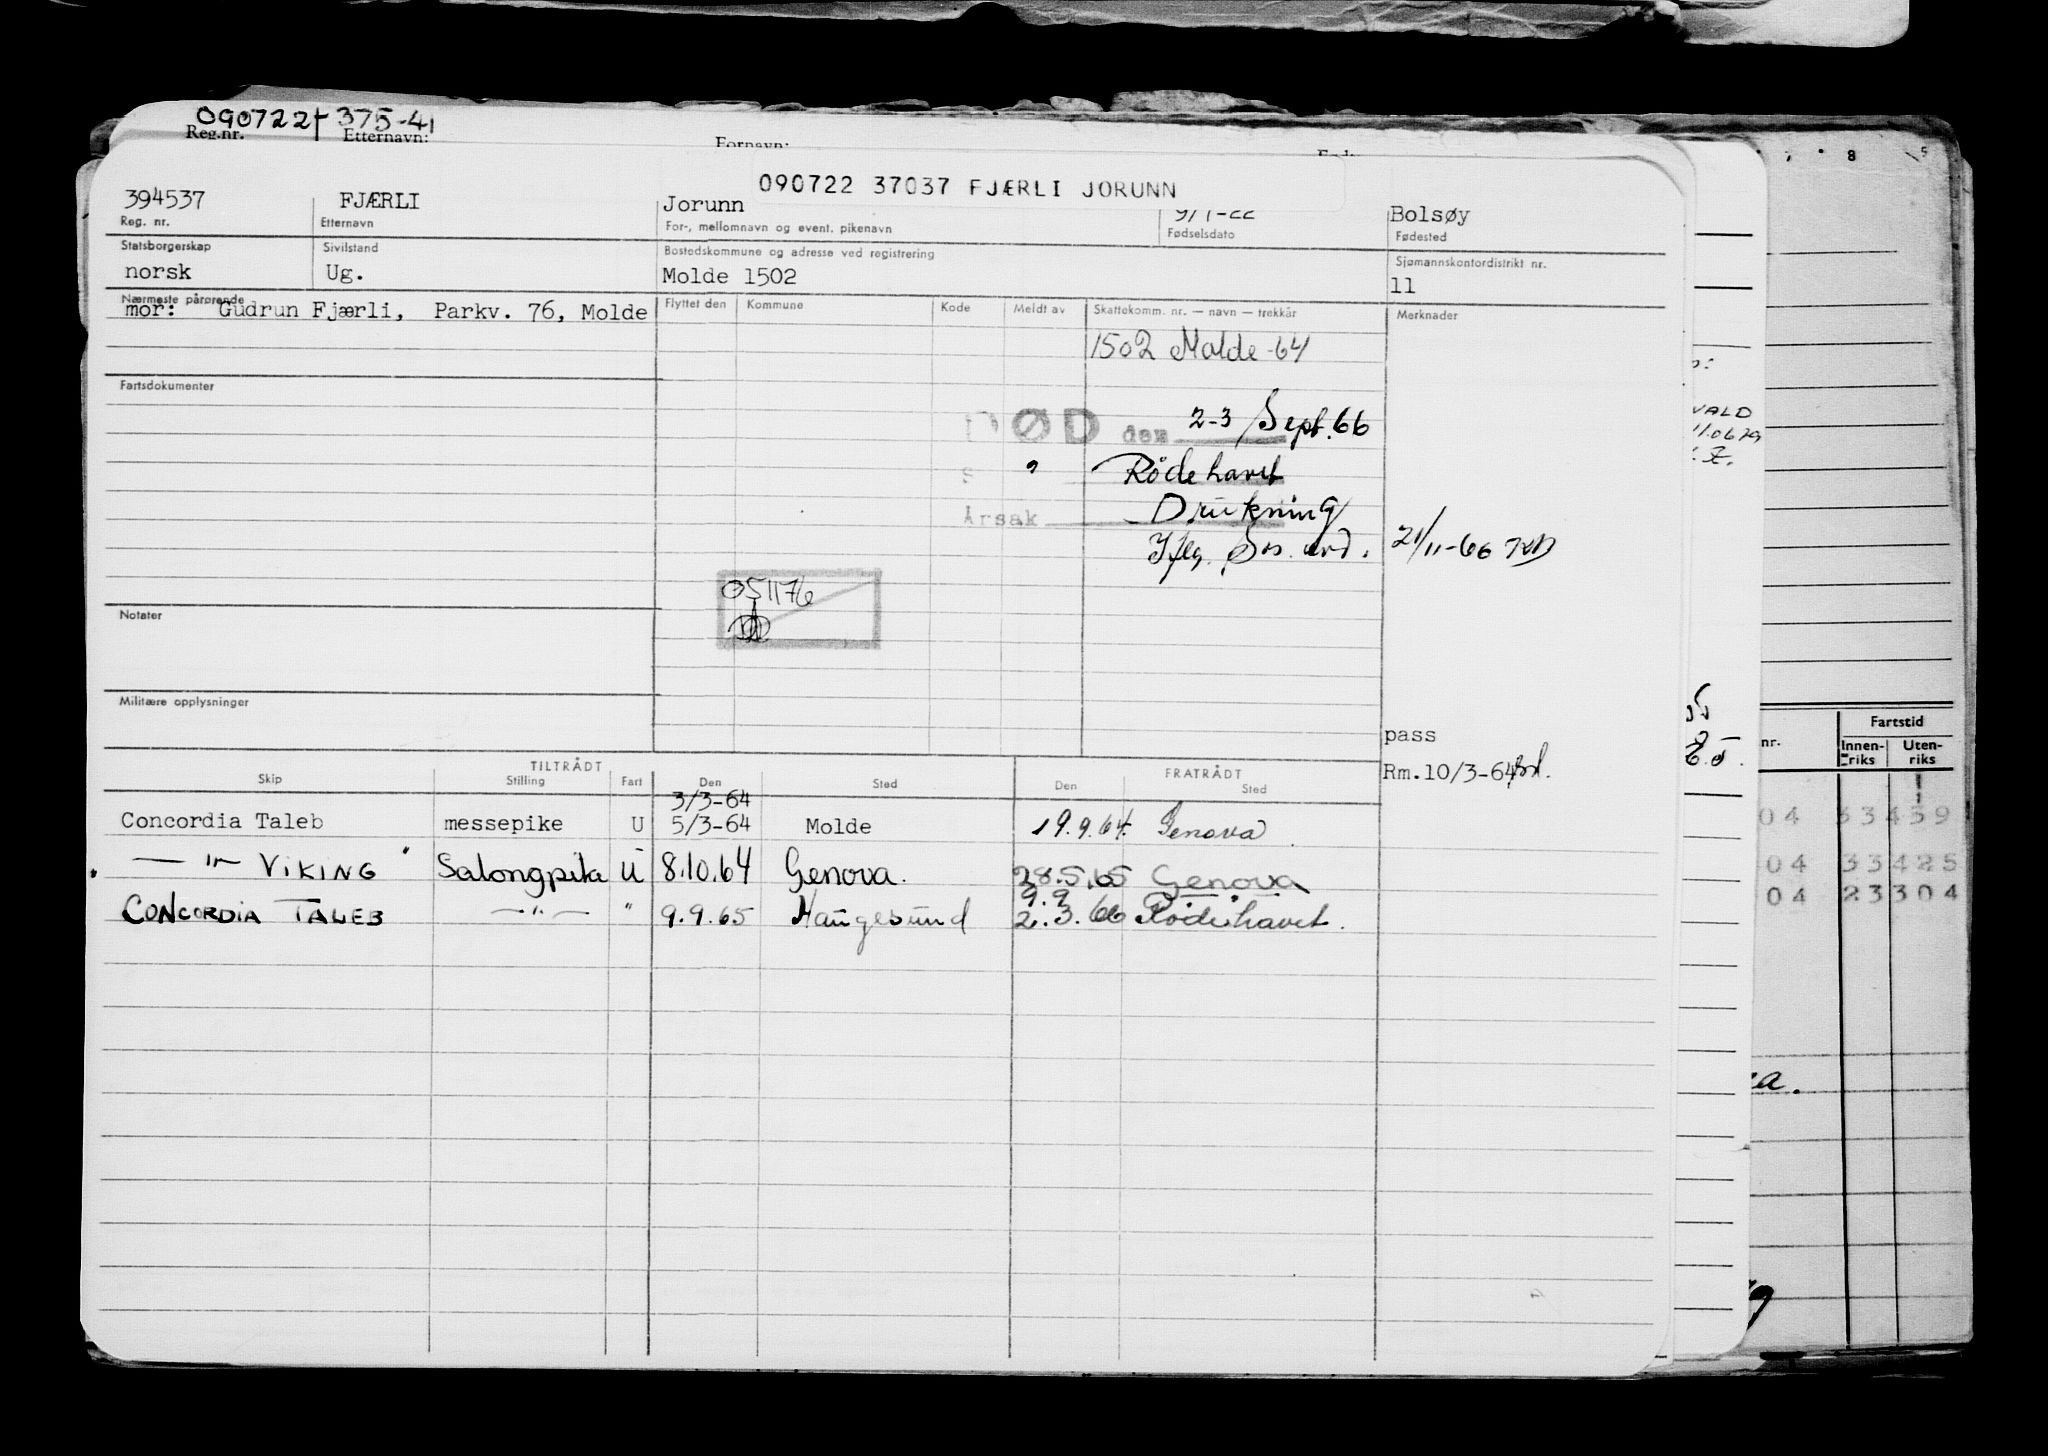 090722 375-41
Reg.nr. Etternavn: Fornavn:
090722 37037 FJÆRLI JORUNN
394537 FJÆRLI Jorunn Bolsøy
Reg. nr. Etternavn For-, mellomnavn og event. pikenavn Fødselsdato Fødested
Statsborgerskap Sivilstand Bostedskommune og adresse ved registrering Sjømannskontordistrikt nr.
norsk Ug. Molde 1502 11
Nærmeste pårørende Flyttet den Kommune Kode Meldt av Skattekomm. nr. — navn — trekkår Merknader
mor: Gudrun Fjærli, Parkv. 76, Molde
1502 Molde -64
Fartsdokumenter
DØD den 2-3 / Sept. 66
s " Rødehavet
Årsak Drukning
Iflg. 21/11-66
051176
Notater
Militære opplysninger
pass
Rm.10/3-64
TILTRÅDT FRATRÅDT
Skip Stilling Fart Den Sted Den Sted
3/3-64
Concordia Taleb messepike U 5/3-64 Molde 19.9.64. Genova
— " — VIKING Salongpike U 8.10.64 Genova. 28.5.65 Genova
9.9.
CONCORDIA TALEB — " — " 9.9.65 Haugesund 2.3.66 Rødehavet.
7 8
VALD
nr. Fartstid
Innen-riks Uten-riks
04 33459
04 33425
04 23304